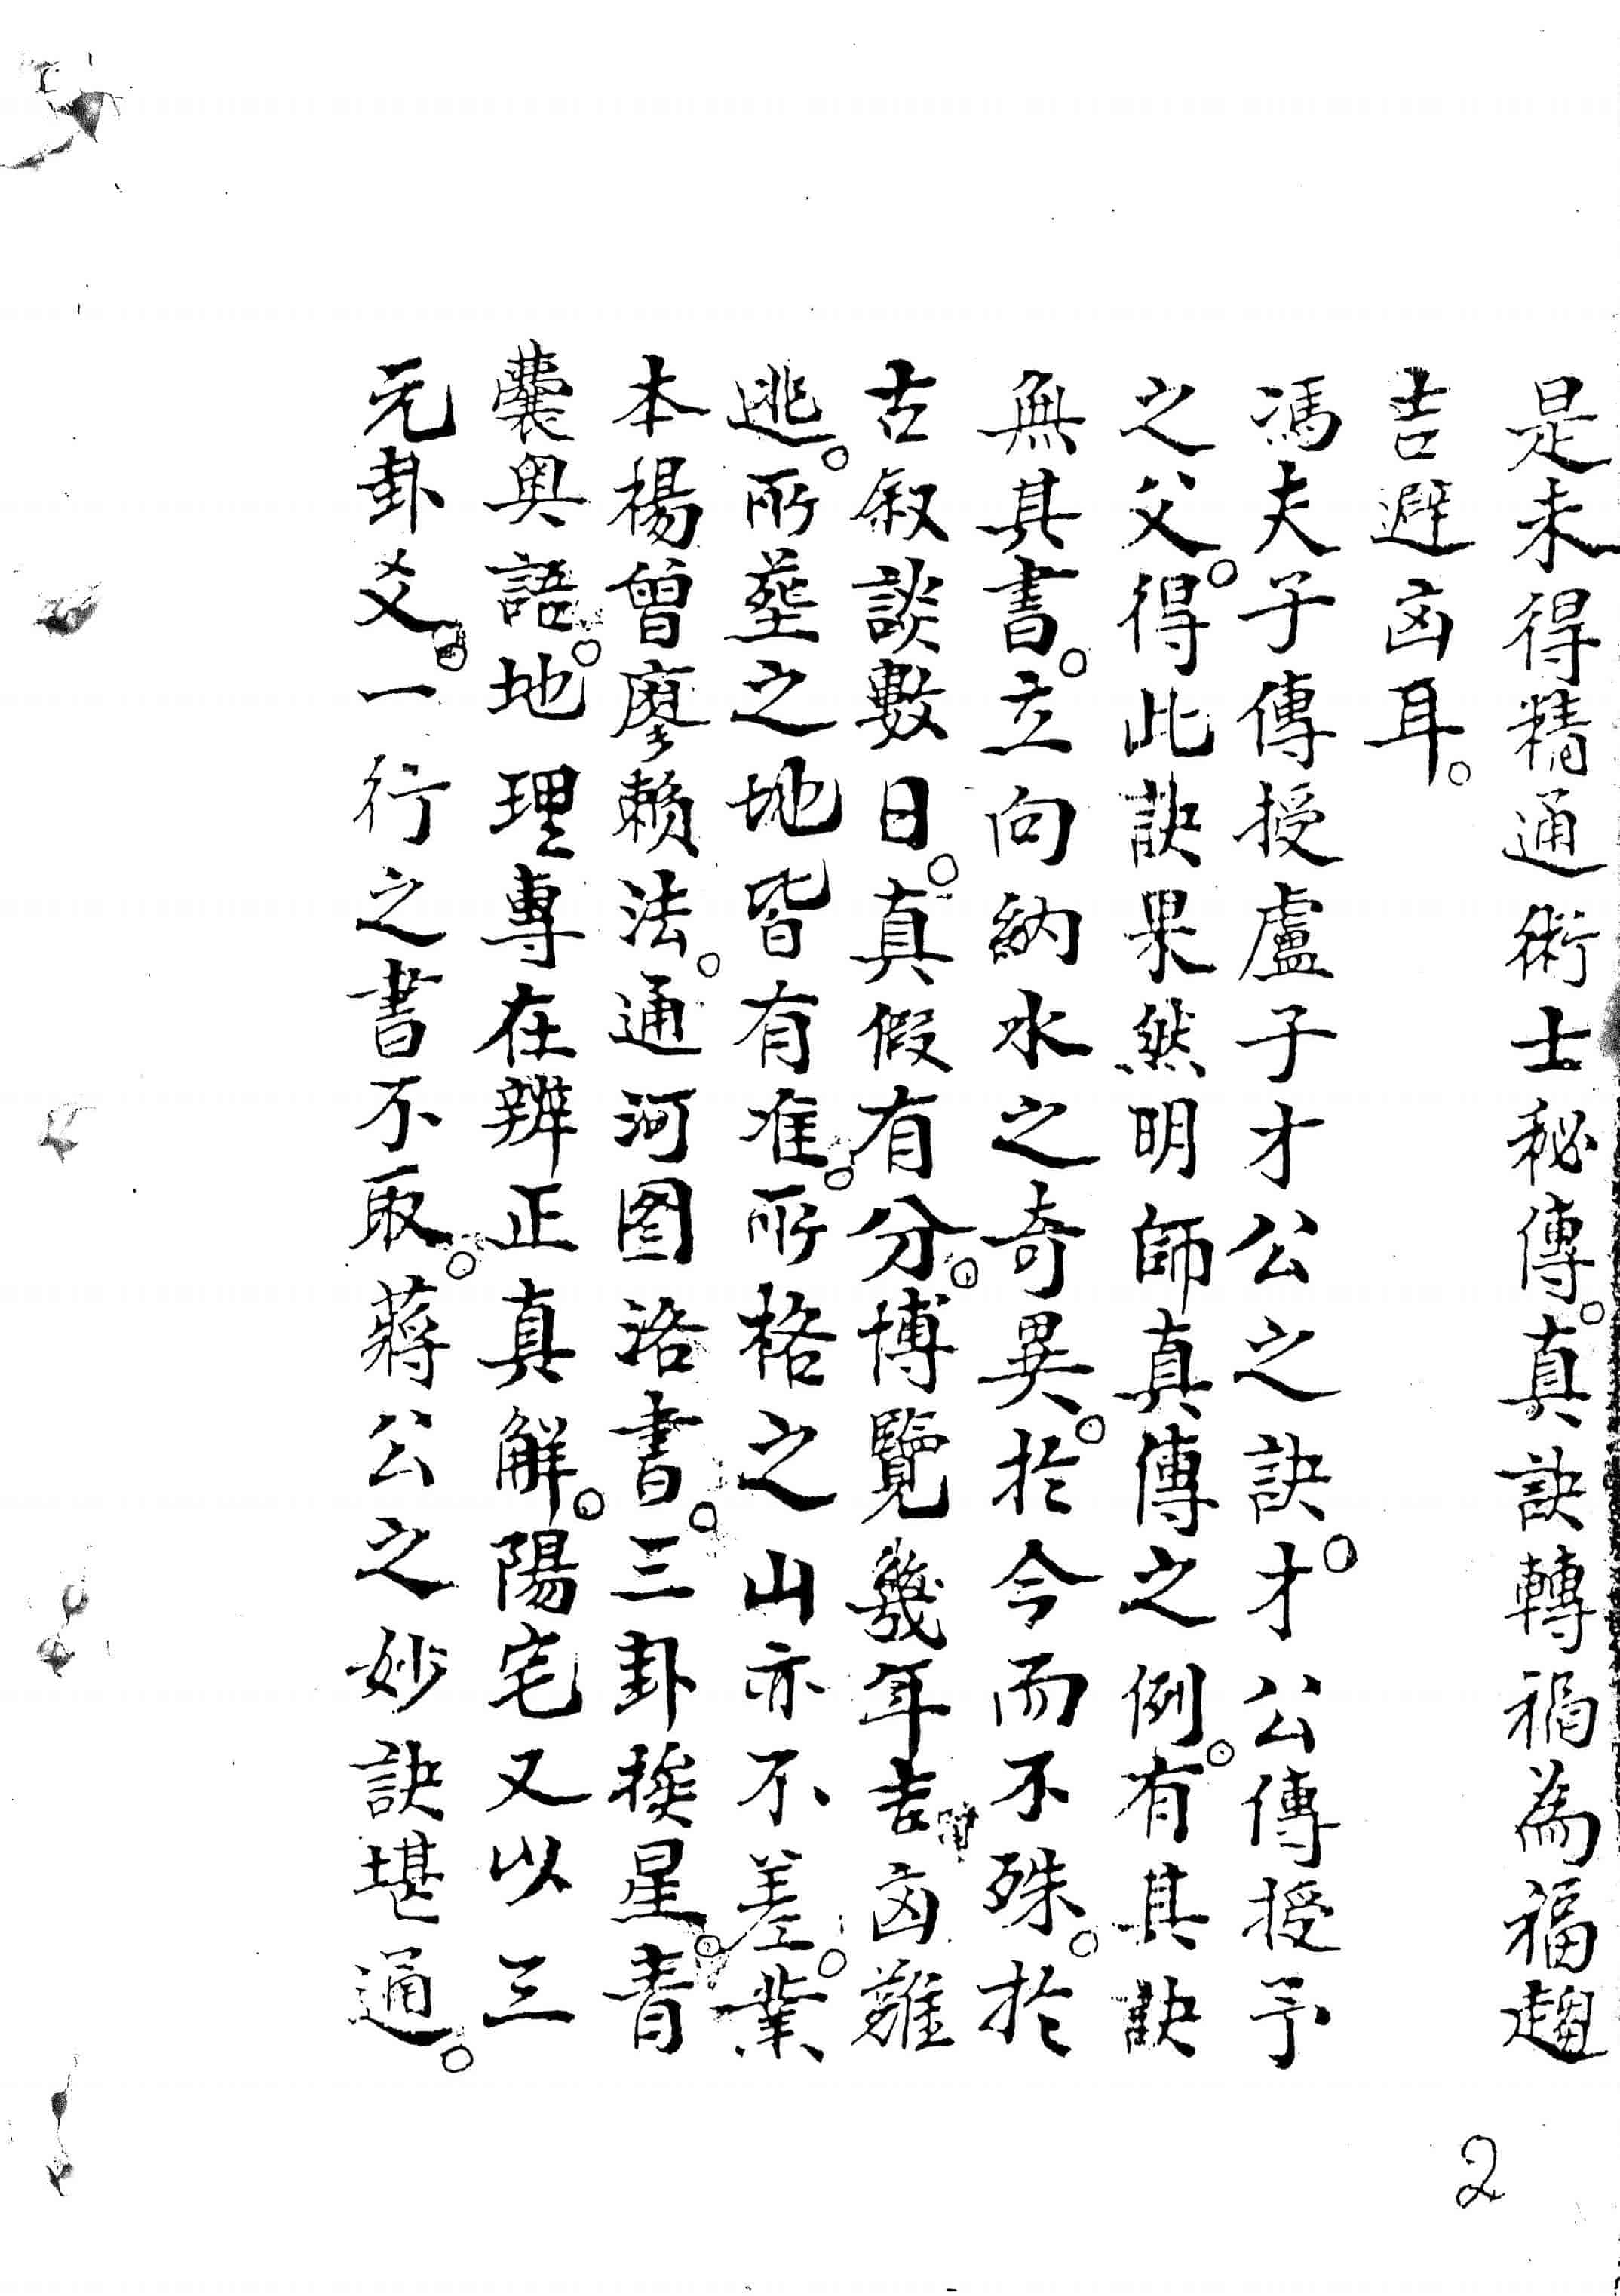 是未得精通術士秘傳。真訣轉禍為福趨
吉避凶耳。
馮夫子傳授盧子才公之訣。才公傳授予
之父。得此訣果然明師真傳之例。有其訣
無其書。立向納水之奇異。於今而不殊。於
古叙談數日。真假有分。博覽幾年吉凶難
逃。所塟之地皆有准。所格之山亦不差。業
本楊曾廖賴法。通河图洛書。三卦挨星。青
囊奥語。地理專在辨正真解。陽宅又以三
元卦爻。一行之書不取。蔣公之妙訣堪通。
2